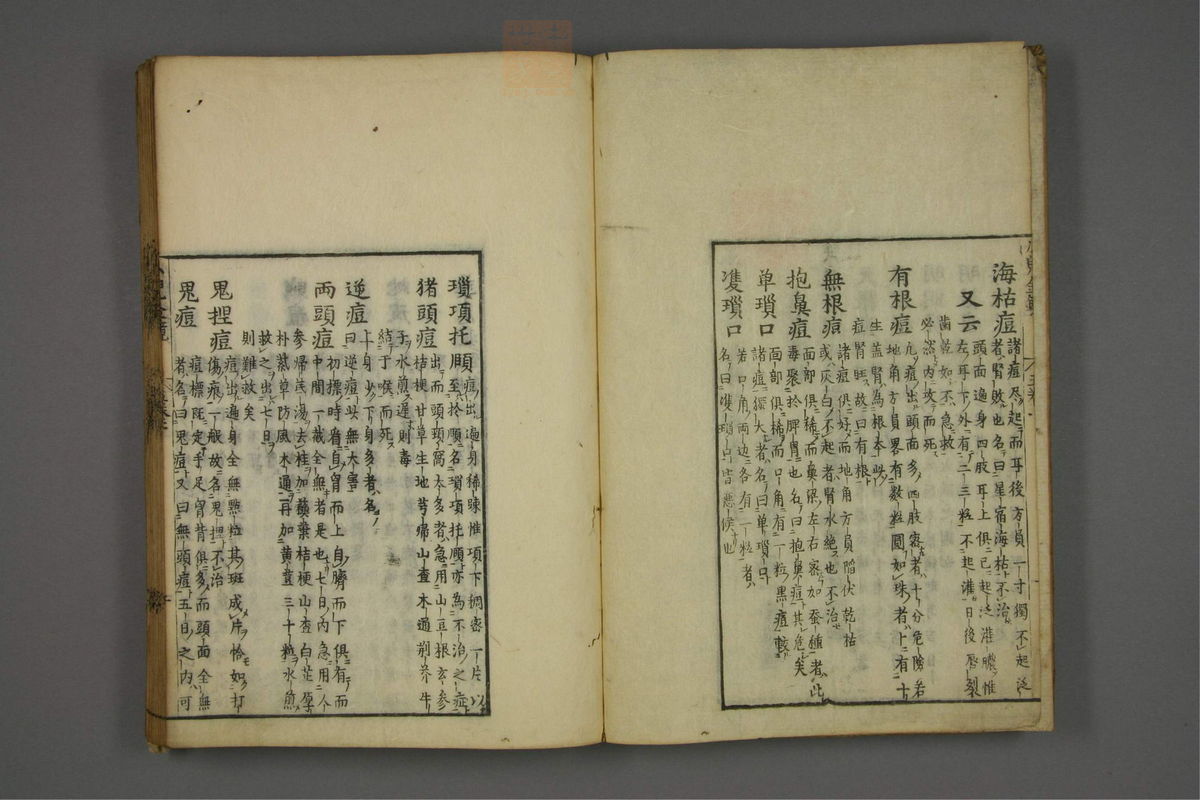 海枯痘 諸痘尽起而耳後方員一寸獨不起泛
者腎敗也名曰星宿海枯不治
又云 頭面遍身四肢耳上俱已起泛灌膿惟
左耳下外有二三粒不起灌日後唇裂
歯乾如不急救
必然内攻而死
有根痘 凡痘出頭面多四肢密者十分危險若
地角方員畧有數粒圓如珠者十有十
生蓋腎為根本此
痘腎旺故曰有根
無根痘 諸痘俱好而地角方員陷伏乾枯
或灰白不起者腎水絶也不治
抱鼻痘 面部俱稀而鼻梁左右密如蚕種者此
毒聚於脾胃也名曰抱鼻痘其危矣
単瑣口 面部俱稀而口角有一粒黒痘較
諸痘獨大者名曰単瑣口
隻瑣口 若口角両边各有一粒者
名曰隻瑣口皆悪候也
瑣項托頤 痘出遍身稀疎惟項下稠密一片以
至於頤名瑣項托頤亦為不治之症
猪頭痘 出而頭頸窩太多者急用山豆根玄参
桔梗甘草生地芎帰山査木通荊芥牛
子水煎遅則毒
結于喉而死
逆痘 上身少下身多者名
曰逆痘此無大害
両頭痘 初標時看自胷而上自臍而下俱有而
中間一截全無者是也七日内急用人
参帰茋湯去桂加蘇葉桔梗山査白芷厚
朴甘草防風木通再加黄茋三十粒水煎
救之出七日
則難救矣
鬼捏痘 痘出遍身全無點粒其斑成片恰如打
傷痕一般故名鬼捏不治
鬼痘 痘標既定手足胷背俱多而頭面全無
者名曰鬼痘又曰無頭痘五日之内可